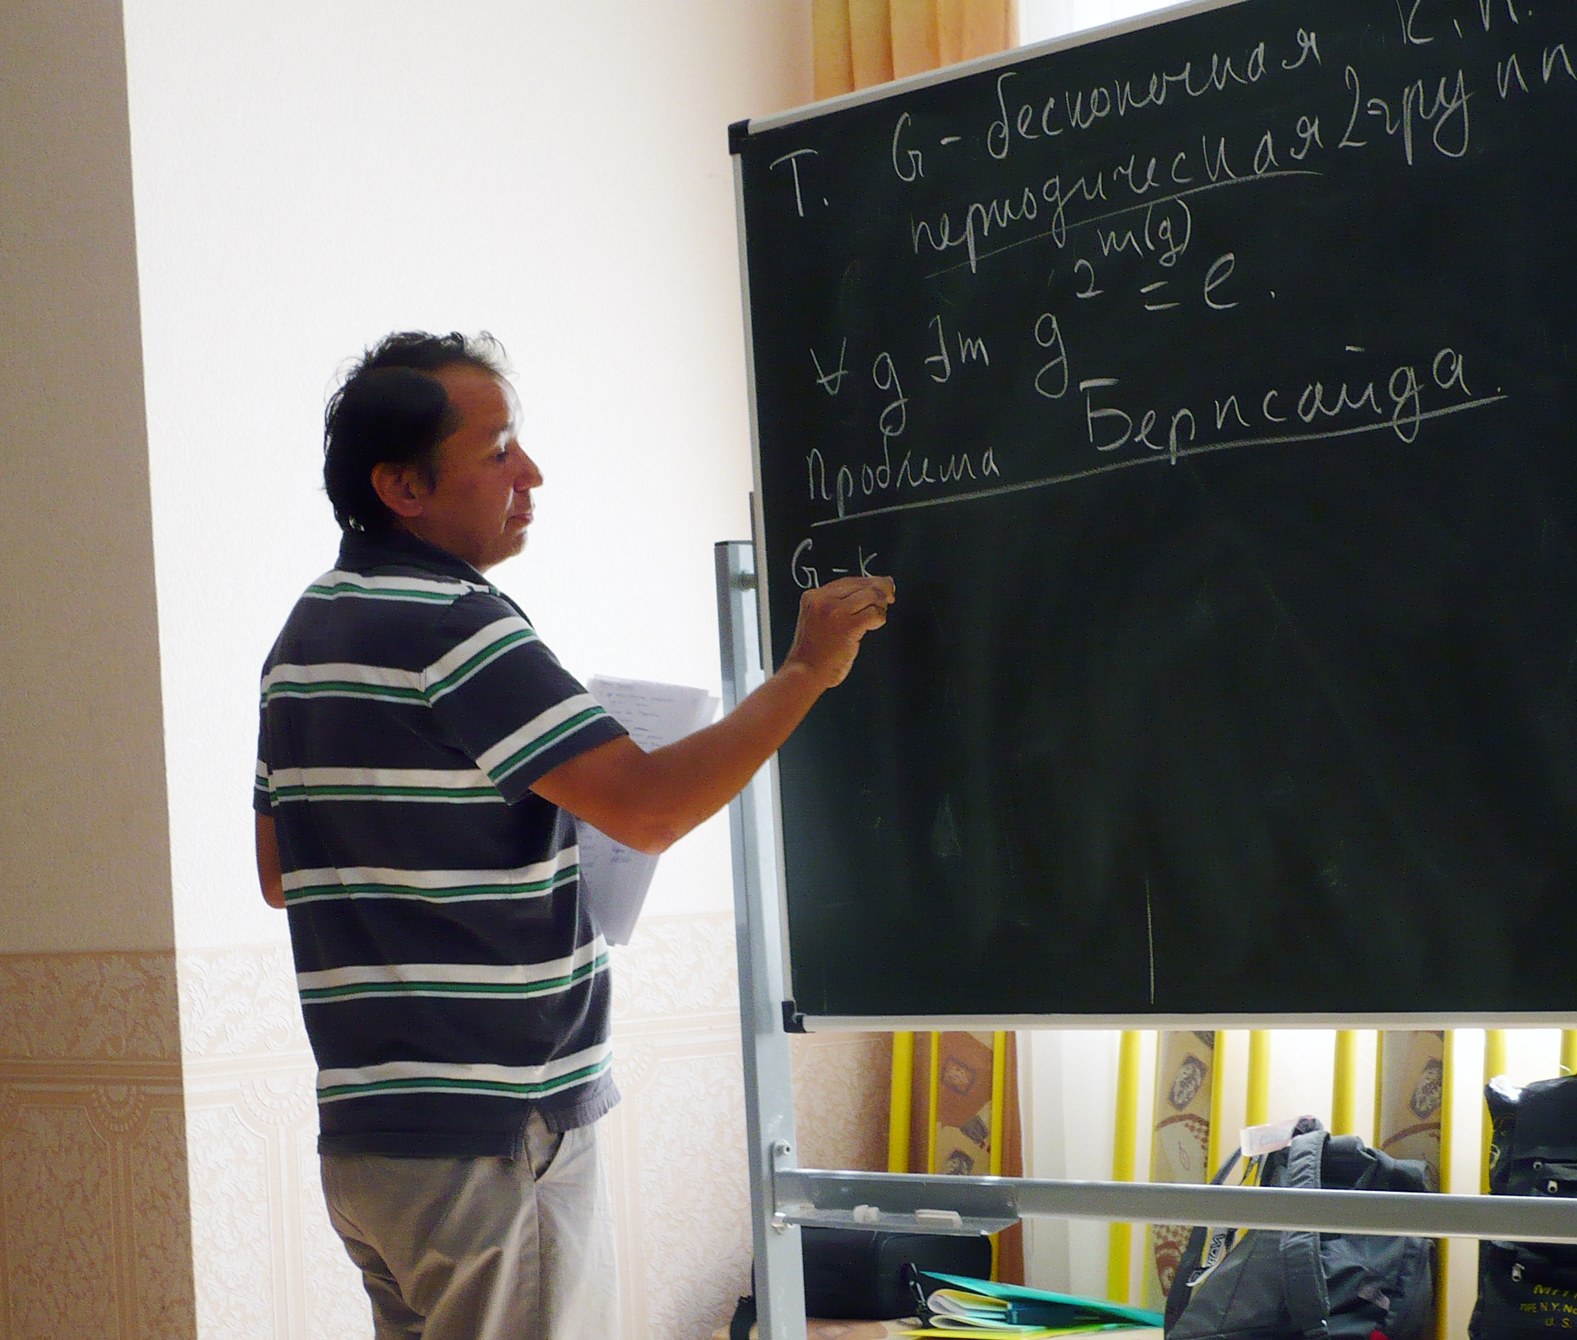 Т. G - бесконечная к.п.
периодическая 2-групп
∀ g ∃m g^2^m(g) = e.
Проблема Бернсайда.
G - к